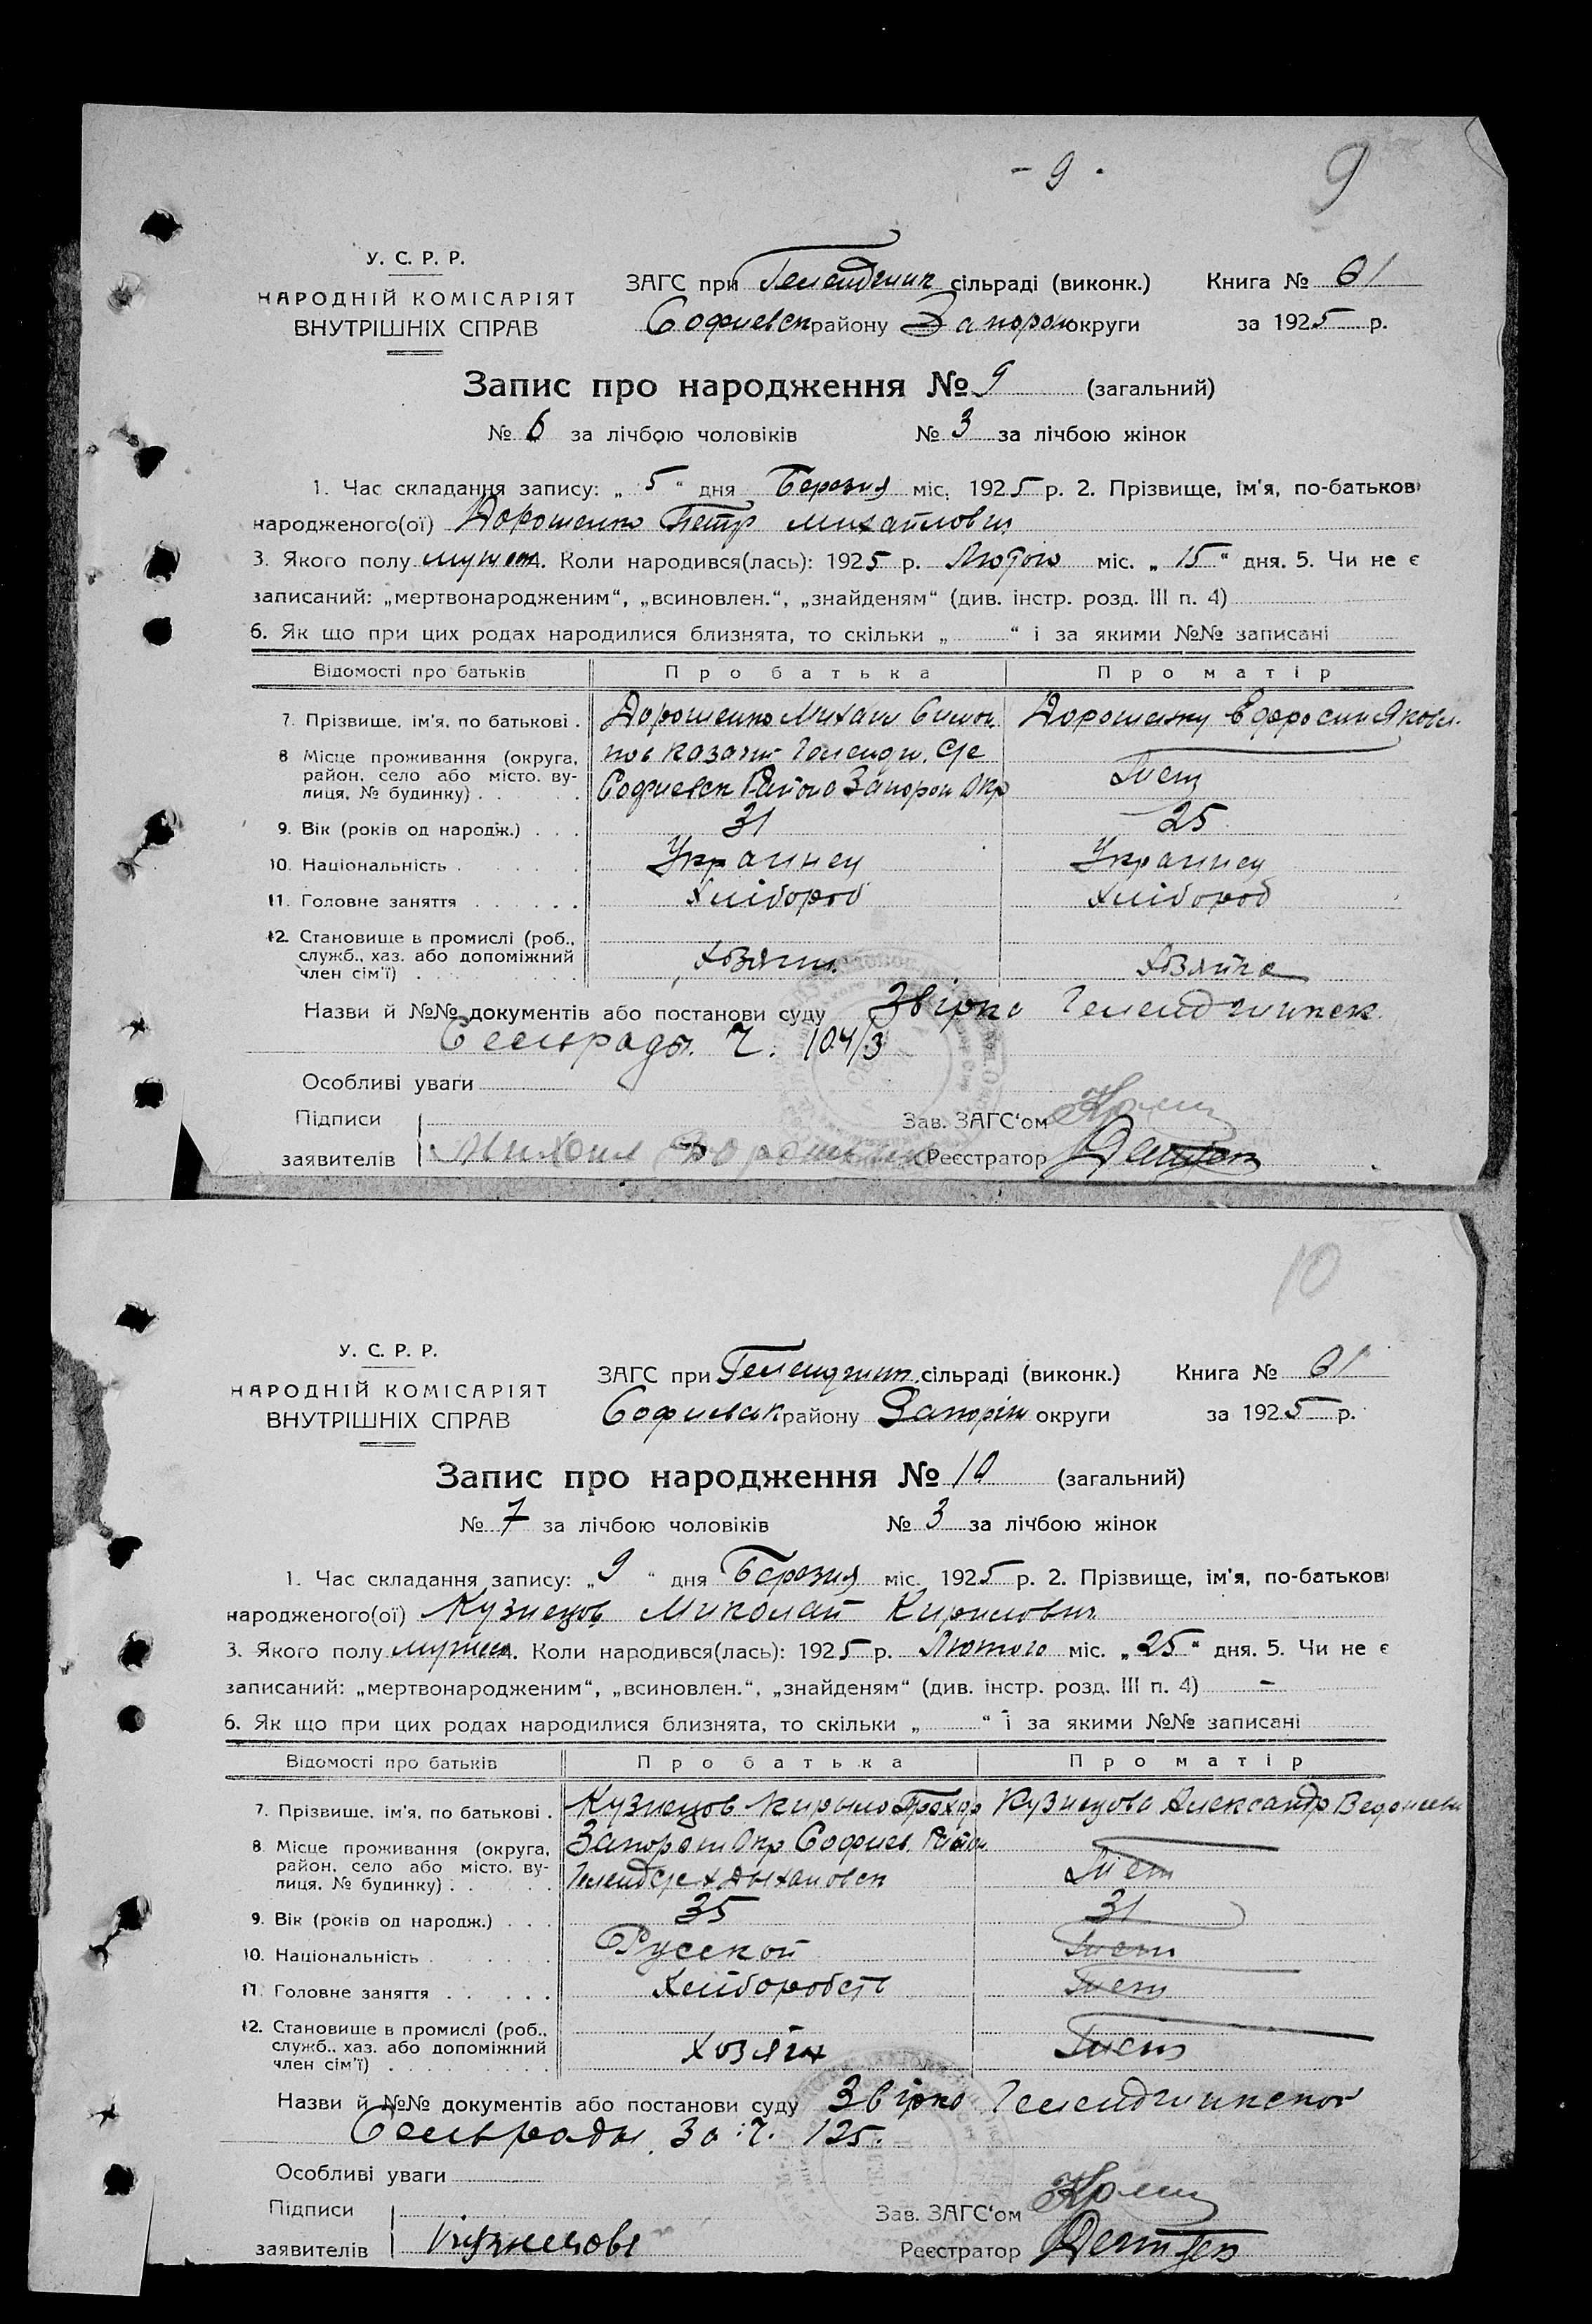 - 9 -
9
У. С. Р. Р.
НАРОДНІЙ КОМІСАРІЯТ
ВНУТРІШНІХ СПРАВ
ЗАГС при Геленджик сільраді (виконк.) Книга № 61
Софиевск району Запорож округи за 1925 р.
Запис про народження № 9 (загальний)
№ 6 за лічбою чоловіків № 3 за лічбою жінок
1. Час складання запису: „ 5 “ дня Березня міс. 1925 р. 2. Прізвище, ім'я, по-батькові
народженого(ої) Дорошенко Петр Михайлович
3. Якого полу мужск 4. Коли народився(лась): 1925 р. Лютого міс. „ 15 “ дня. 5. Чи не є
записаний: „мертвонародженим“, „всиновлен.“, „знайденям“ (див. інстр. розд. III п. 4)
6. Як що при цих родах народилися близнята, то скільки „ “ і за якими №№ записані
Відомості про батьків Про батька Про матір
7. Прізвище, ім'я, по батькові . Дорошенко Михаил Симон. Дорошенку Ефросин Яковл.
8 Місце проживання (округа, район, село або місто, вулиця, № будинку) . Геленджик. С/с
Софиевск Района Запорож Окр
9. Вік (років од народж.) . . . 31 25
10. Національність . Украинец Украинец
11. Головне заняття . . . . . . Хлібороб Хлібороб
12. Становище в промислі (роб.,
служб., хаз. або допоміжний
член сім'ї) . Хозяин. Хозяйка
Назви й №№ документів або постанови суду Звірка Геленджикск.
Сельрады. Ч. 104/3
Особливі уваги
Підписи Зав. ЗАГС'ом
заявителів Михаил Дорошенко Реєстратор
10
У. С. Р. Р.
НАРОДНІЙ КОМІСАРІЯТ
ВНУТРІШНІХ СПРАВ
ЗАГС при Геленджик. сільраді (виконк.) Книга № 61
Софиевск району Запоріж округи за 1925 р.
Запис про народження № 10 (загальний)
№ 7 за лічбою чоловіків № 3 за лічбою жінок
1. Час складання запису: „ 9 “ дня Березня міс. 1925 р. 2. Прізвище, ім'я, по-батькові
народженого(ої) Кузнецов Миколай Кирилович
3. Якого полу мужск 4. Коли народився(лась): 1925 р. Лютого міс. „ 25 “ дня. 5. Чи не є
записаний: „мертвонародженим“, „всиновлен.“, „знайденям“ (див. інстр. розд. III п. 4) -
6. Як що при цих родах народилися близнята, то скільки „ “ і за якими №№ записані
Відомості про батьків Про батька Про матір
7. Прізвище, ім'я, по батькові . Кузнецов Кирыло Прохор Кузнецова Александр
8. Місце проживання (округа, Запорож Окр Софиев. Район
район, село або місто, ву-
лиця, № будинку) .
9. Вік (років од народж.) . . . 35 31
10. Національність . Русской
11. Головне заняття . . . . . .
12. Становище в промислі (роб.,
служб., хаз. або допоміжний
член сім'ї) . Хозяин
Назви й №№ документів або постанови суду Звірка Геленджикской
Сельрады. За Ч. 125.
Особливі уваги
Підписи Зав. ЗАГС'ом
заявителів Кузнецовь Реєстратор